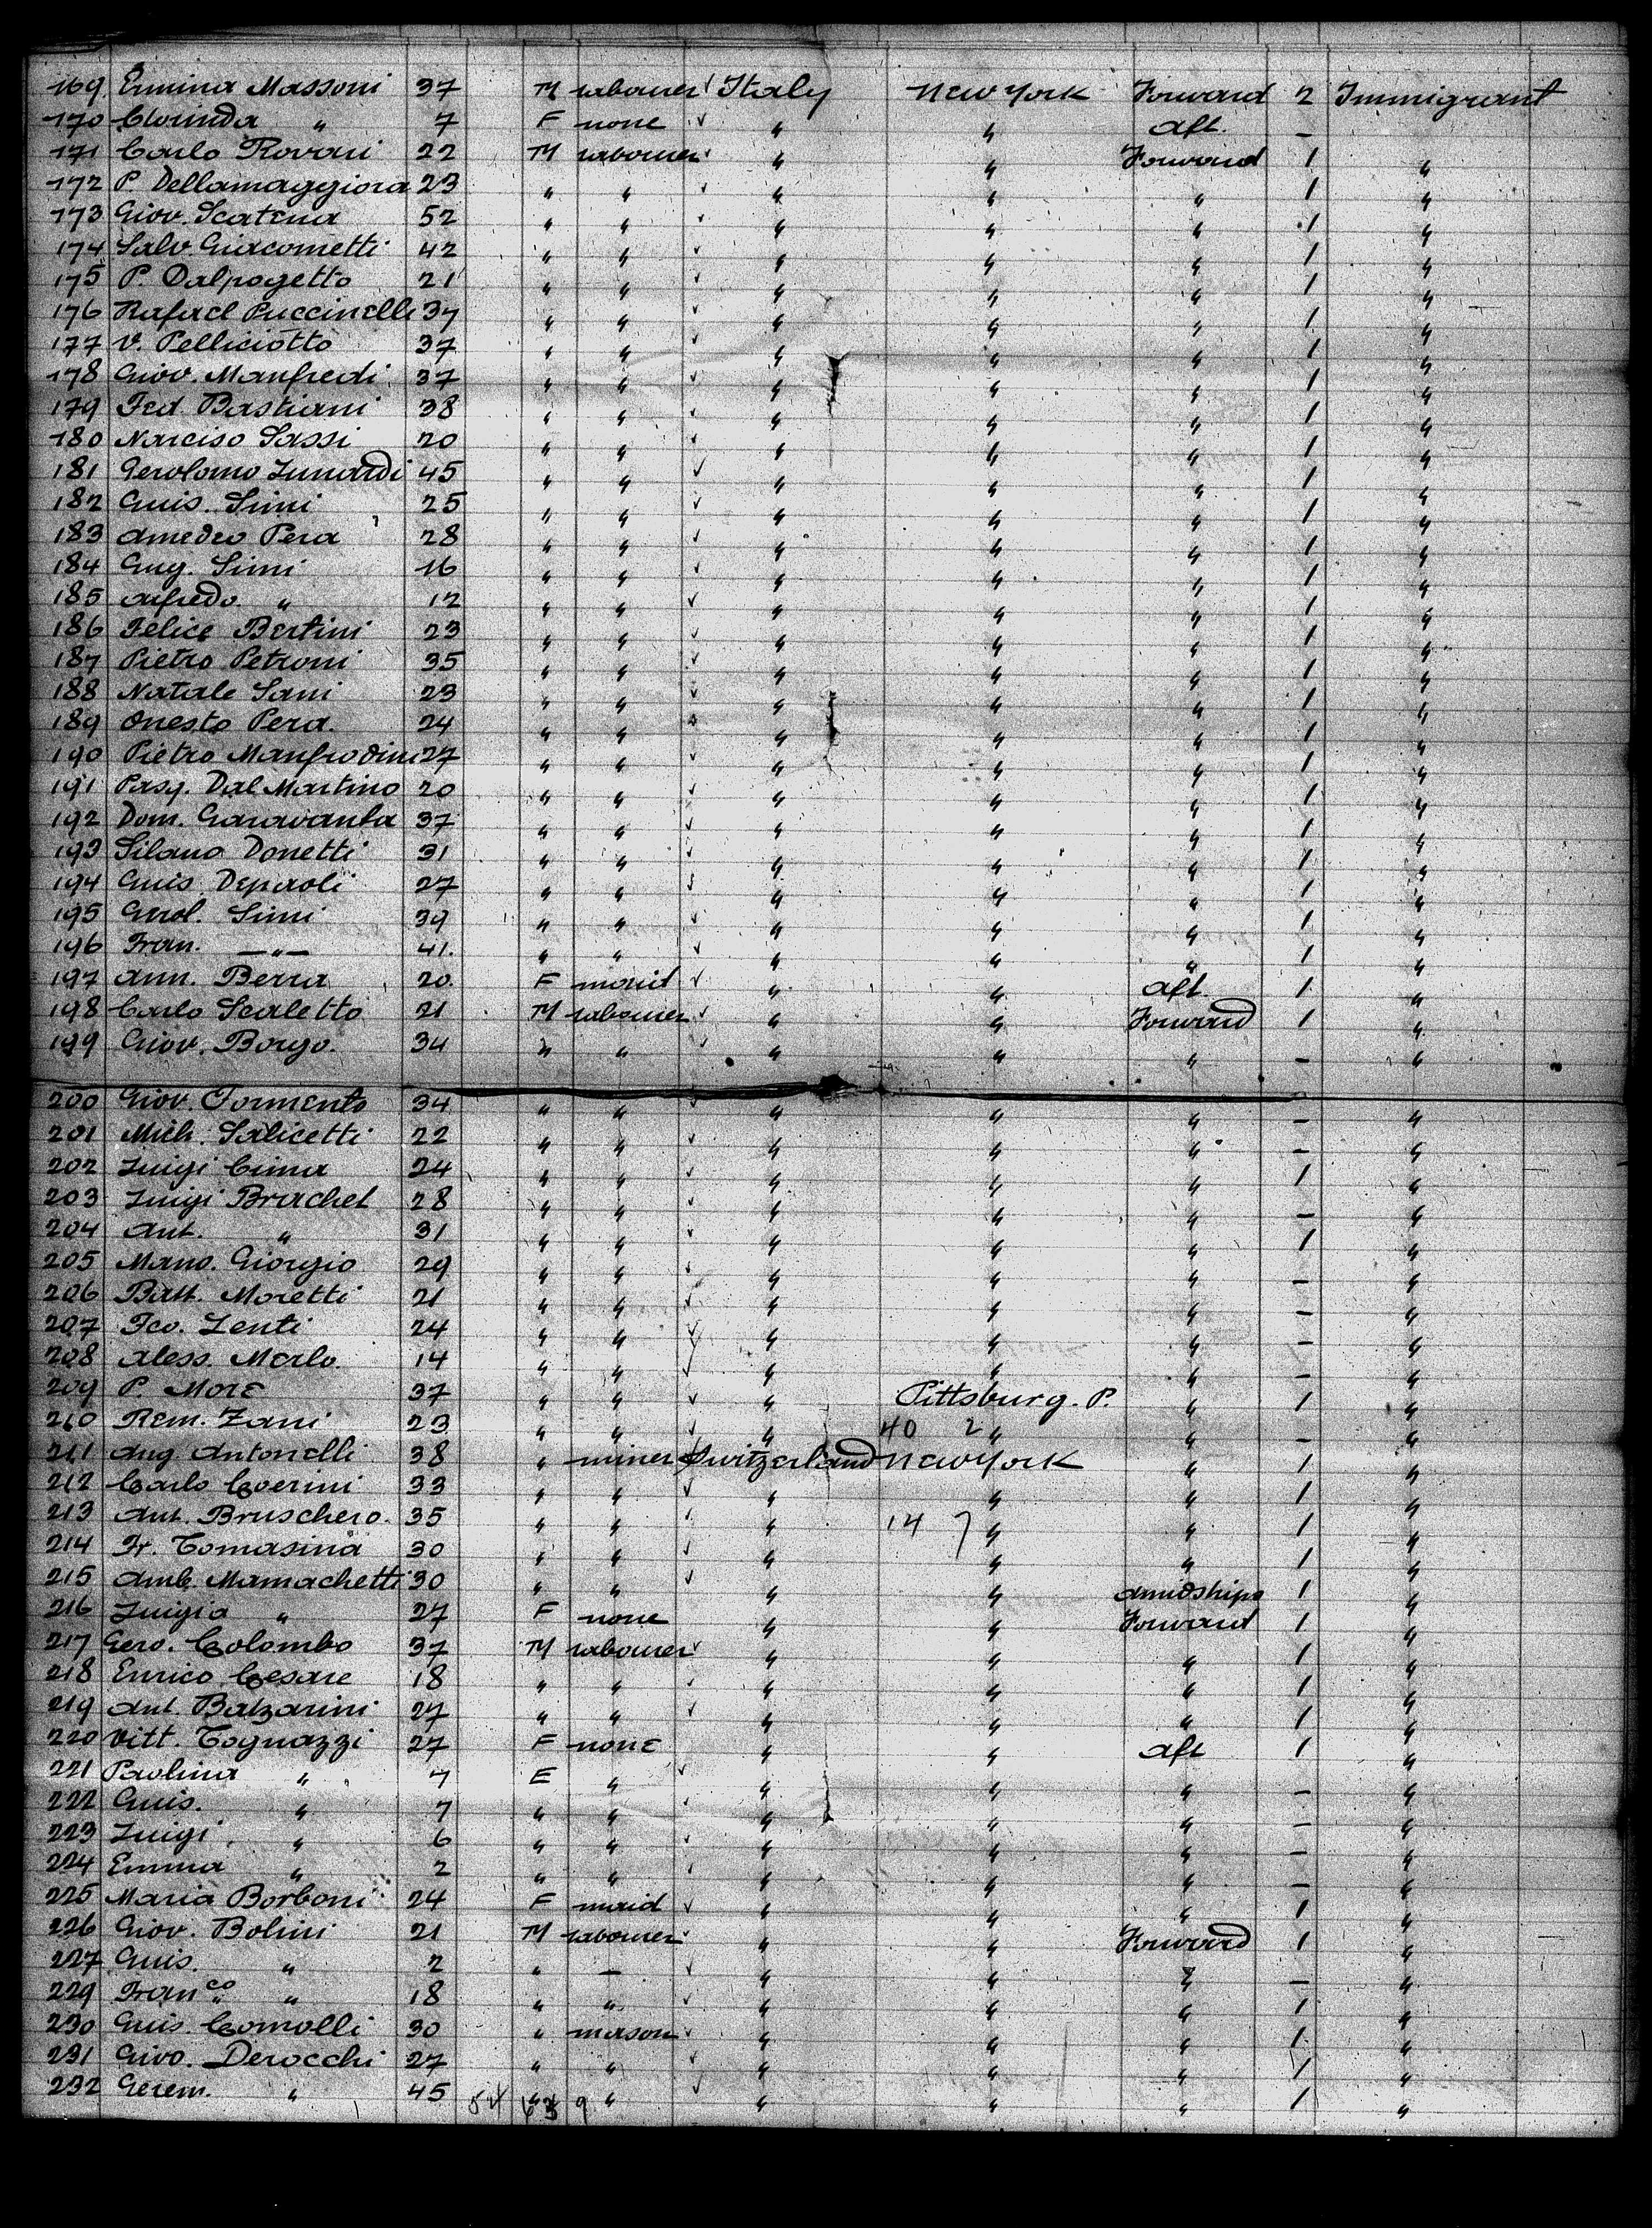 169. Ermina Massoni 37 M labourer Italy New York Forward 2 Immigrant
170 Clorinda " 7 F none " " Aft. – 
171 Carlo Rovari 22 M labourer " " Forward 1 "
172 P. Dellamaggiora 23 " " " " " 1 "
173 Giov. Scatena 52 " " " " " 1 "
174 Salv. Giacometti 42 " " " " " 1 "
175 P. Dalpogetto 21 " " " " " 1 "
176 Rafael Puccinelli 37 " " " " " 1 "
177 V. Pelliciotto 37 " " " " " 1 "
178 Giov. Manfredi 37 " " " " " 1 "
179 Fed. Bastiani 38 " " " " " 1 "
180 Narciso Sassi 20 " " " " " 1 "
181 Gerolomo Lunardi 45 " " " " " 1 "
182 Guis. Simi 25 " " " " " 1 "
183 Amedeo Pera 28 " " " " " 1 "
184 Gug. Simi 16 " " " " " 1 "
185 Alfredo " 12 " " " " " 1 "
186 Felice Bertini 23 " " " " " 1 "
187 Pietro Petroni 35 " " " " " 1 "
188 Natale Sani 23 " " " " " 1 "
189 Onesto Pera. 24 " " " " " 1 "
190 Pietro Manfrodini 27 " " " " " 1 "
191 Pasq. Dal Martino 20 " " " " " 1 "
192 Dom. Garavanta 37 " " " " " 1 "
193 Silano Donetti 31 " " " " " 1 "
194 Guis. Depaoli 27 " " " " " 1 "
195 Gerol. Simi 39 " " " " " 1 "
196 Fran. –"– 41. " " " " " 1 "
197 Ann. Berra 20. F maid " " Aft 1 "
198 Carlo Scaletto 21 M labourer " " Forward 1 "
199 Giov. Borgo. 34 " " " " " – "
200 Giov. Tormento 34 " " " " " – "
201 Mich. Salicetti 22 " " " " " – "
202 Luigi Cima 24 " " " " " 1 "
203 Luigi Brachet 28 " " " " " – "
204 Ant. " 31 " " " " " 1 "
205 Mano. Giorgio 29 " " " " " – "
206 Batt. Moretti 21 " " " " " – "
207 Fco. Lenti 24 " " " " " – "
208 Aless. Merlo. 14 " " " " " – "
209 P. More 37 " " " Pittsburg. P. " 1 "
210 Rem. Zani 23 " " " 40 2 " " – "
211 Aug. Antonelli 38 " miner Switzerland New York " 1 "
212 Carlo Coerini 33 " " " " " 1 "
213 Ant. Bruschero. 35 " " " 14 7 " " 1 "
214 Fr. Tomasina 30 " " " " " 1 "
215 Amb. Mamachetti 30 " " " " Amidships 1 "
216 Luigia " 27 F none " " Forward 1 "
217 Gero. Colombo 37 M labourer " " " 1 "
218 Enrico Cesare 18 " " " " " 1 "
219 Ant. Balzarini 27 " " " " " 1 "
220 Vitt. Tognazzi 27 F none " " Aft 1 "
221 Paolina " 7 F " " " " – "
222 Guis. " 7 " " " " " – "
223 Luigi " 6 " " " " " – "
224 Emma " 2 " " " " " – "
225 Maria Borboni 24 F maid " " " 1 "
226 Giov. Bolini 21 M labourer " " Forward 1 "
227 Guis. " 2 " – " " " – "
229 Franco " 18 " " " " " 1 "
230 Guis. Comolli 30 " mason " " " 1 "
231 Givo. Derocchi 27 " " " " " 1 "
232 Gerem. " 45 " " " " " 1 "